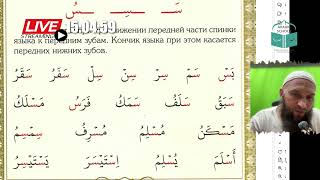 سَـ ـسِـ ـسُ
LIVE 15:04:59
STREAMING
ближении передней части спинки
языка к передним зубам. Кончик языка при этом касается
передних нижних зубов.
بَسْ سَمْ سِرْ سِنْ سِلْ سَفَرُ سَقَرُ
سَبَقَ سَلَفُ سَمَكُ فَرَسُ مَسْلَكُ
مَسْكَنُ مُسْلِمُ مُسْرِفُ سِمْسِمُ
أَسْلَمَ يُسْلِمُ اِسْتَيْسَرَ يَسْتَيْسِرُ